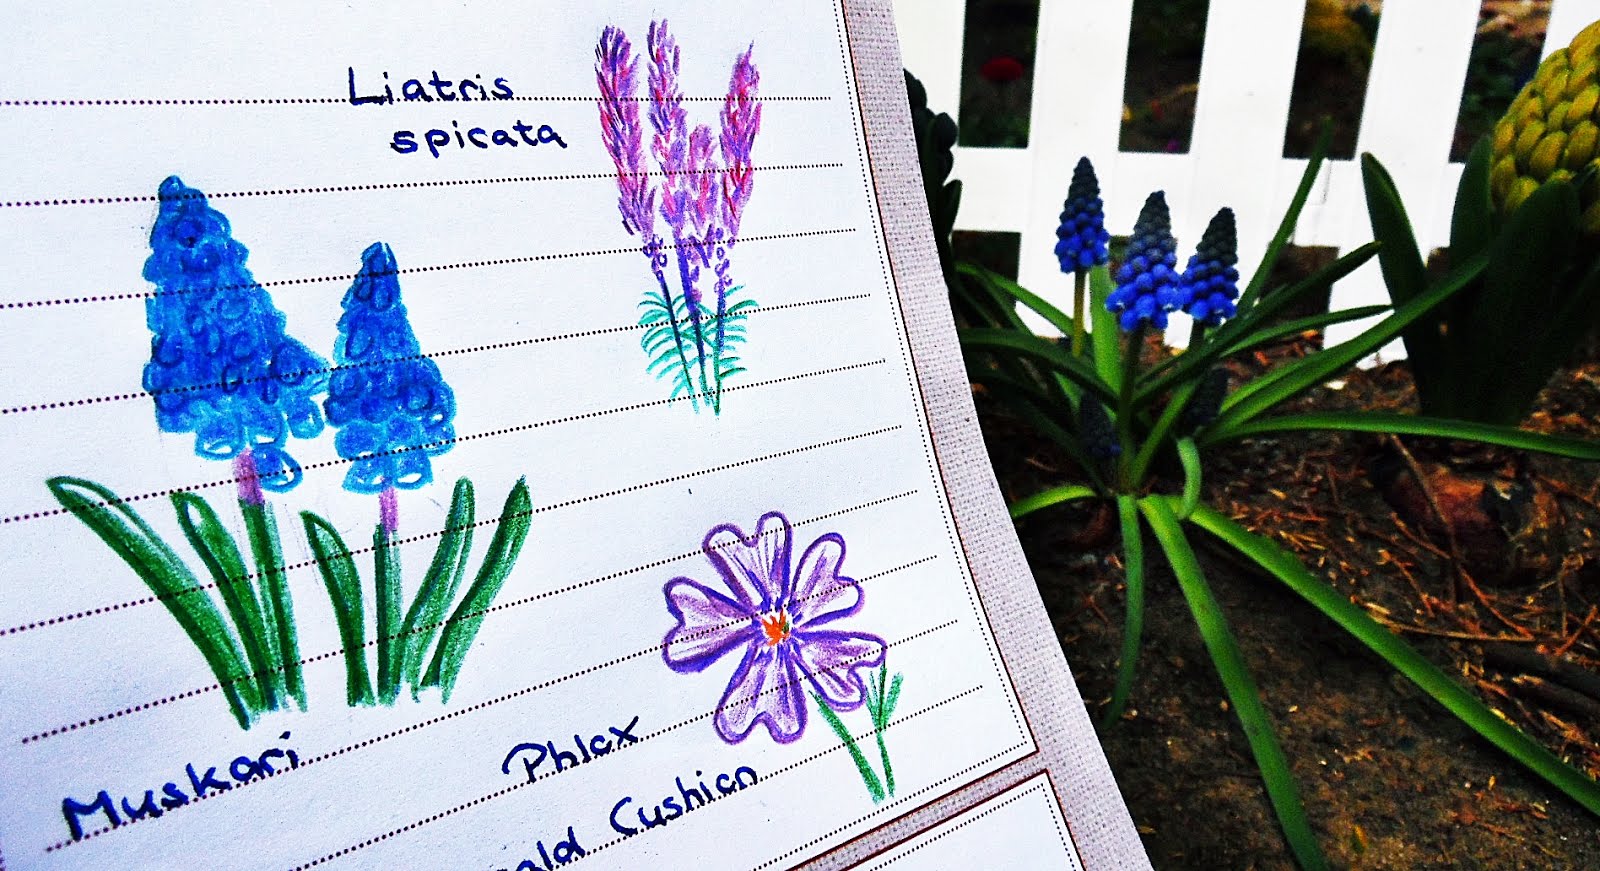 Liatris
spicata
Muskari
Phlox
ald Cushion